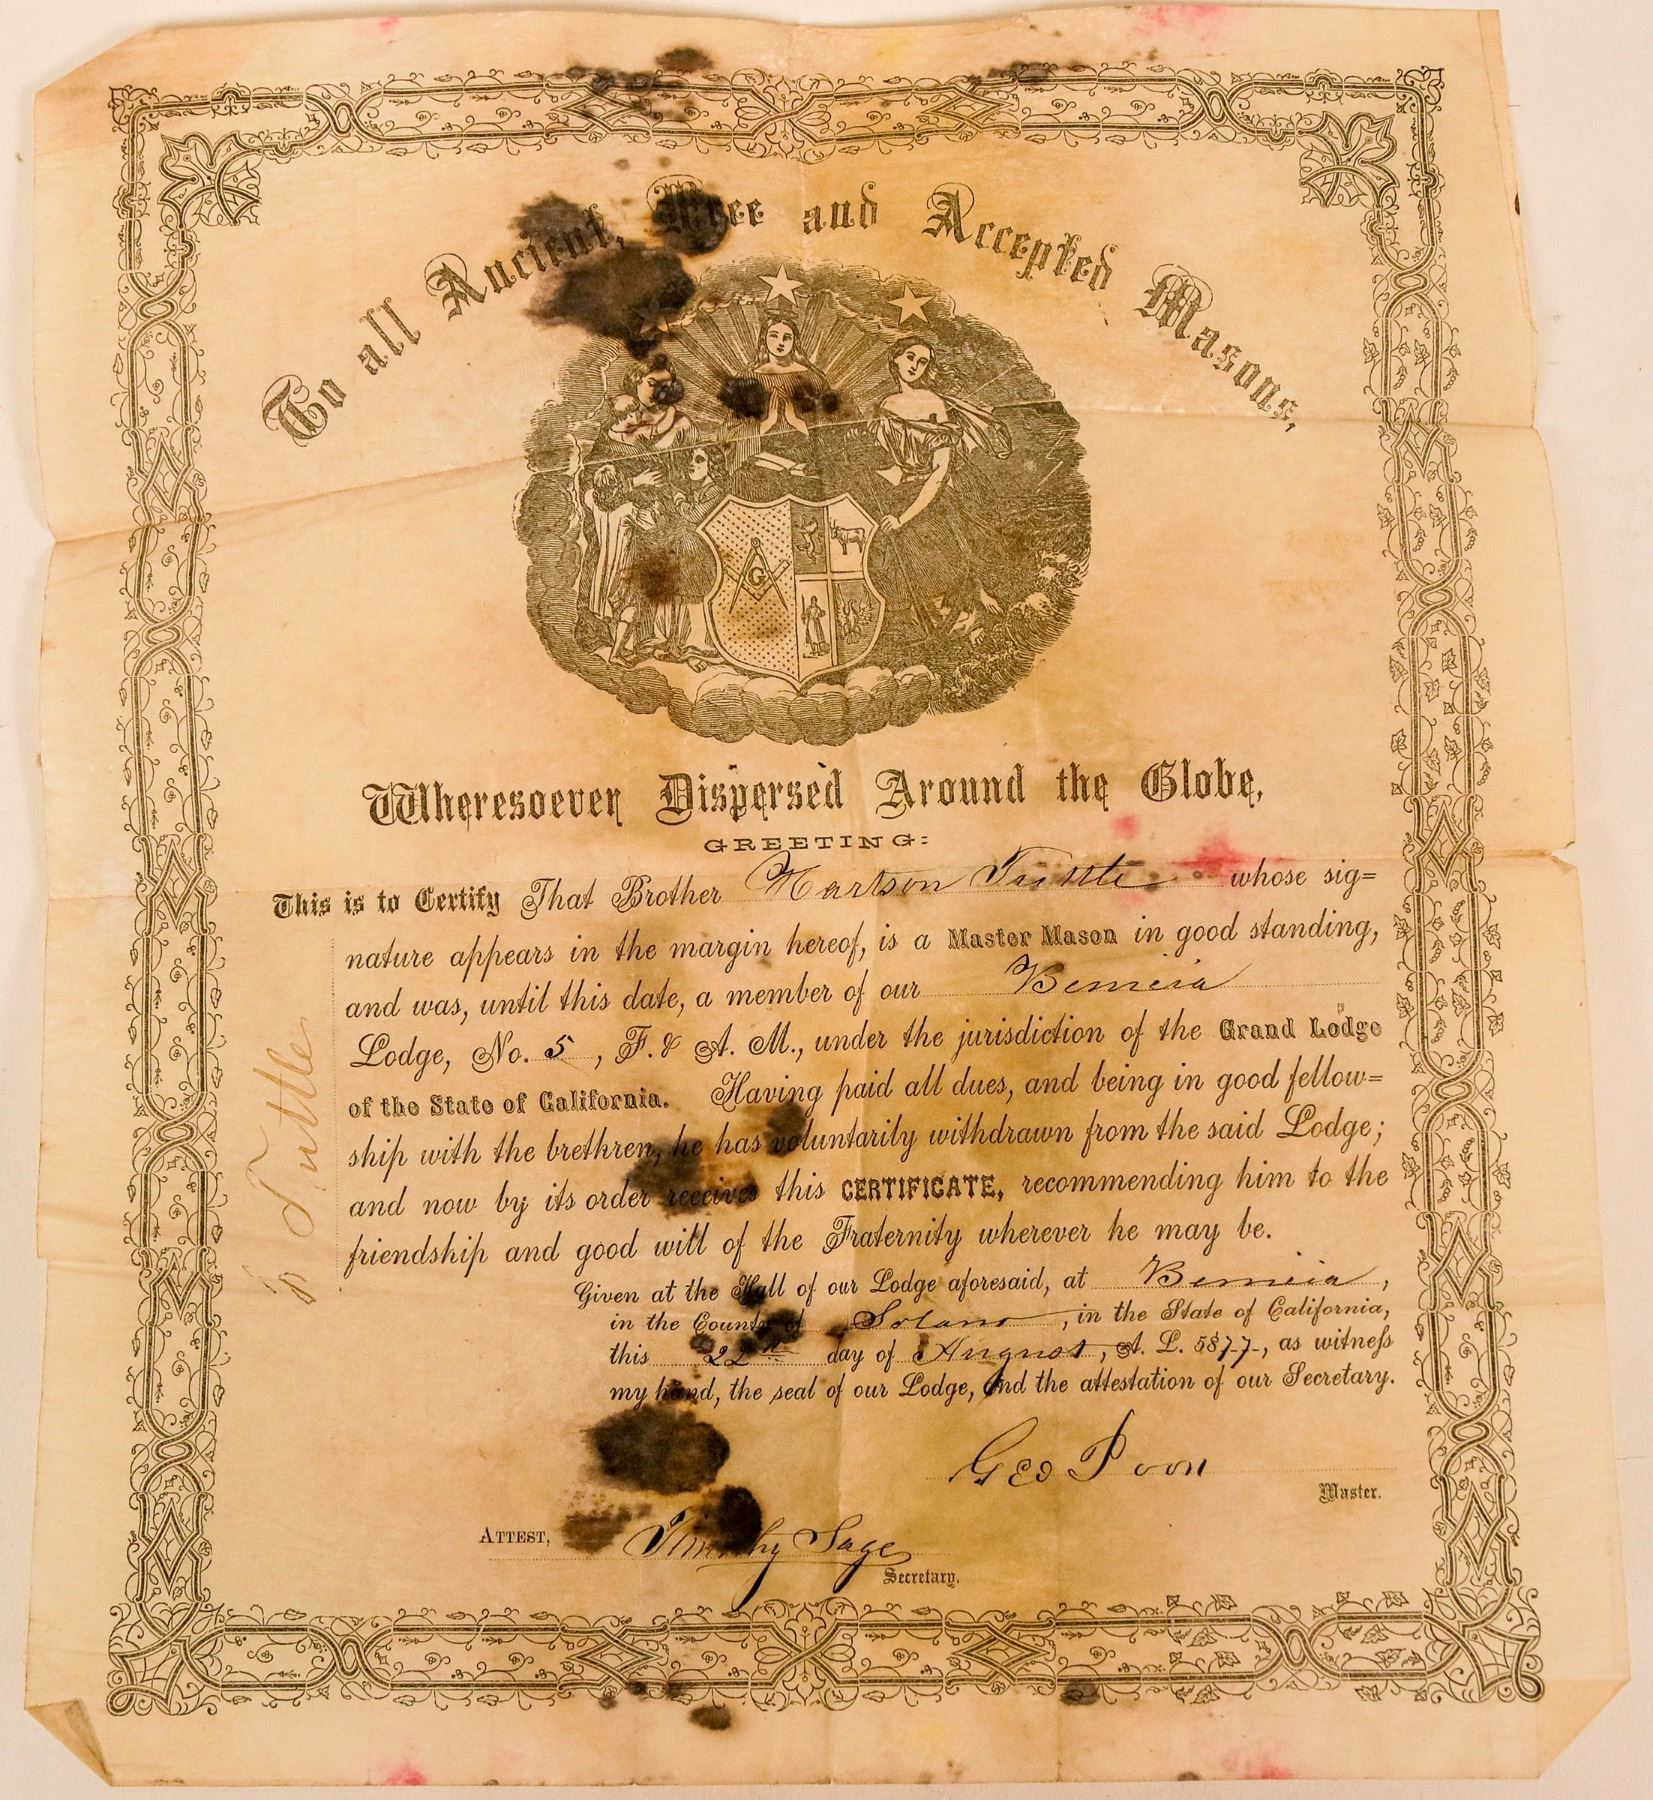 To all Ancient, Free and Accepted Masons,
G
Wheresoever Dispersed Around the Globe,
GREETING:
This is to Certify That Brother Hartson Tuttle whose sig=
nature appears in the margin hereof, is a Master Mason in good standing,
and was, until this date, a member of our Benicia
Lodge, No. 5, F. & A. M., under the jurisdiction of the Grand Lodge
of the State of California. Having paid all dues, and being in good fellow=
ship with the brethren, he has voluntarily withdrawn from the said Lodge;
and now by its order receives this CERTIFICATE, recommending him to the
friendship and good will of the Fraternity wherever he may be.
Given at the Hall of our Lodge aforesaid, at Benicia,
in the County of Solano, in the State of California,
this 22nd day of August, A. L. 5877, as witness
my hand, the seal of our Lodge, and the attestation of our Secretary.
Geo
Master.
ATTEST, Timothy Sage
Secretary.
Tuttle